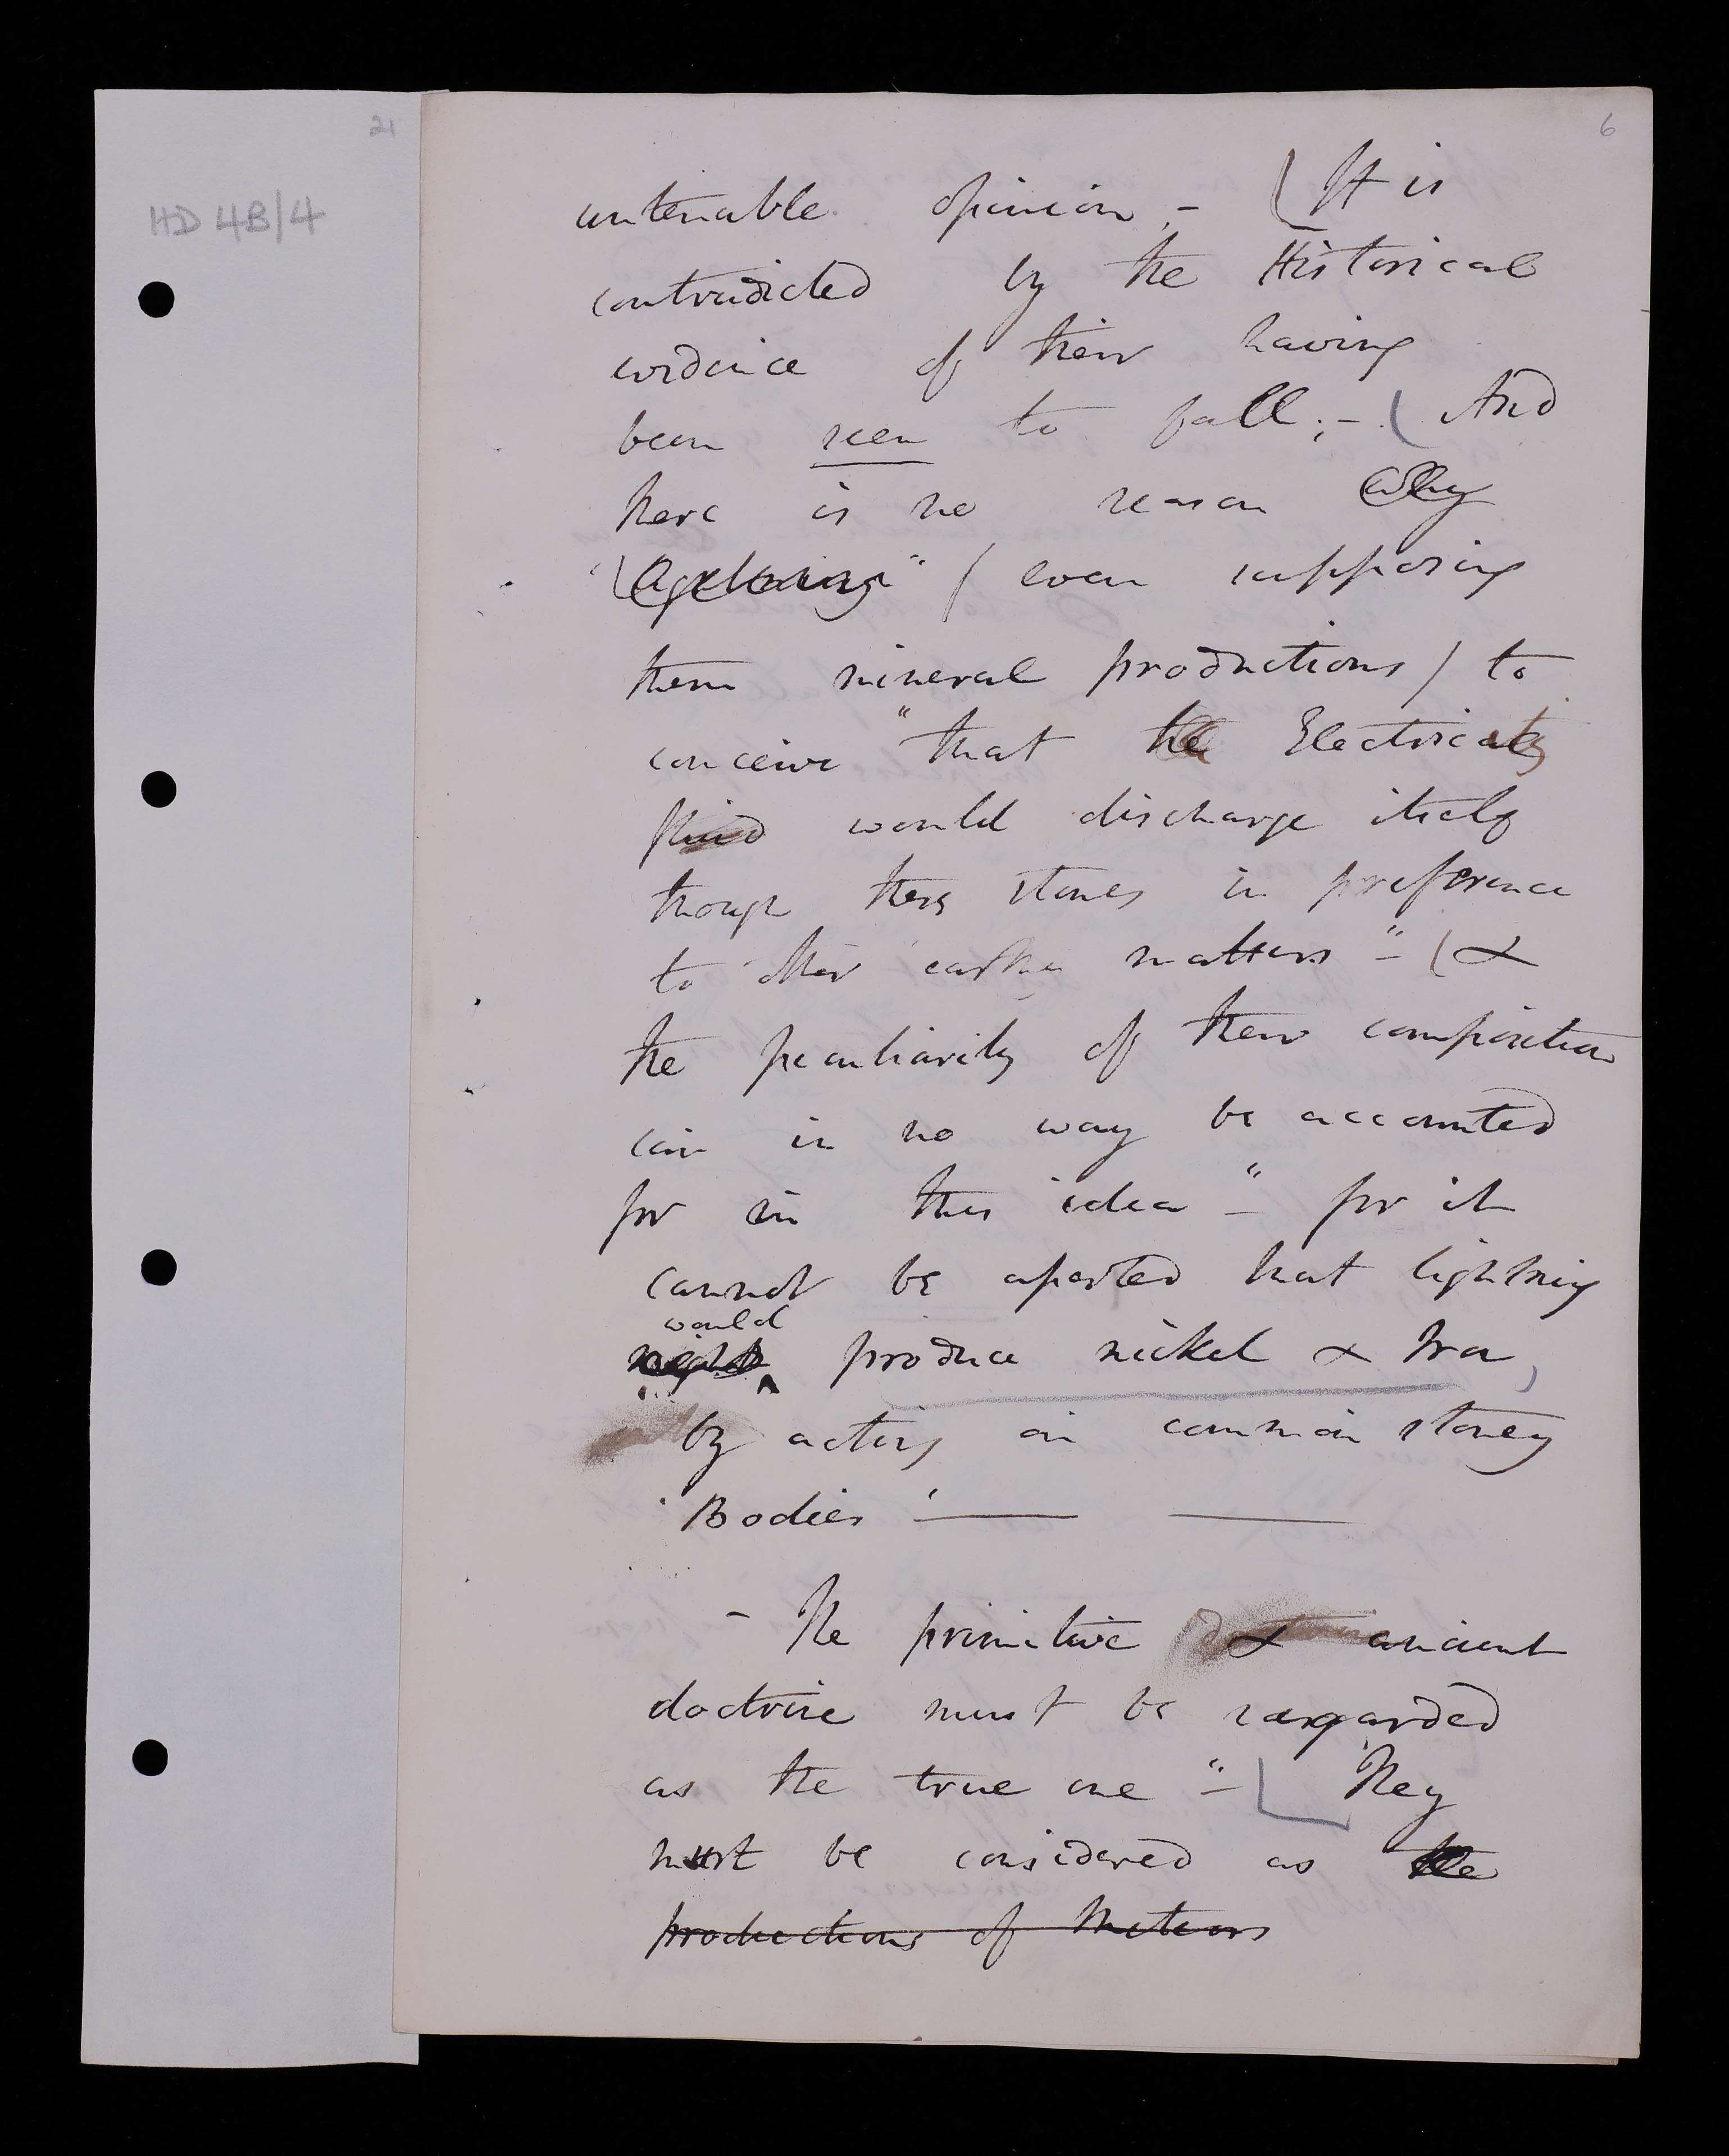 21
6
HD 4B/4
untenable opinion, - (It is
contradicted by the Historical
evidence of their having
been seen to fall; - (And
there is no reason why
(even supposing
them mineral productions) to
conceive "that the Electrical
fluid would discharge itself
though these stones in preference
to other earthy matters" - (&
the peculiarity of their composition
can in no way be accounted
for in this idea" - for it
cannot be asserted that lightning
would
might produce nickel & Iron,
by acting on common stoney
Bodies
- The primitive & ancient
doctrine must be regarded
as the true one "- They
must be considered as the
productions of Meteors